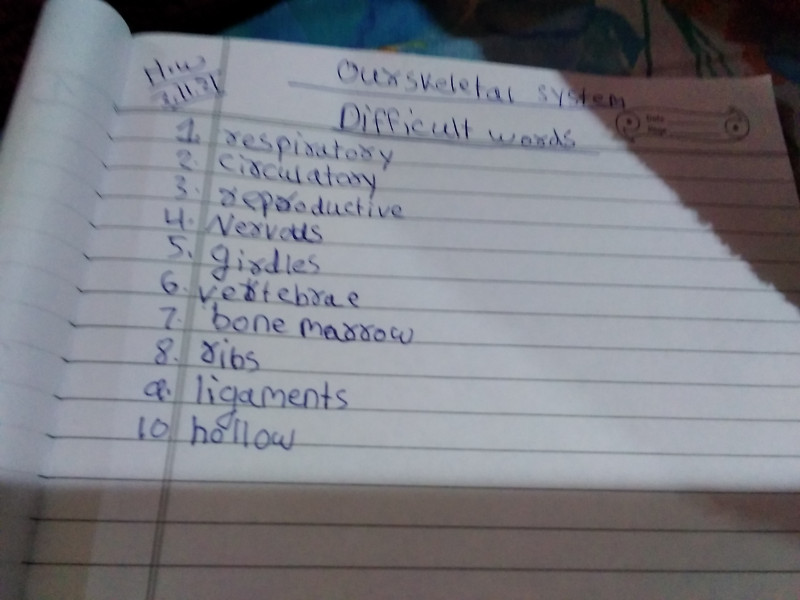 H.W
Our skeletal system
Difficult words
1. respiratory
2. circulatory
3. reproductive
4. Nervous
5. girdles
6. vertebrae
7. bone marrow
8. ribs
9. ligaments
10 hollow